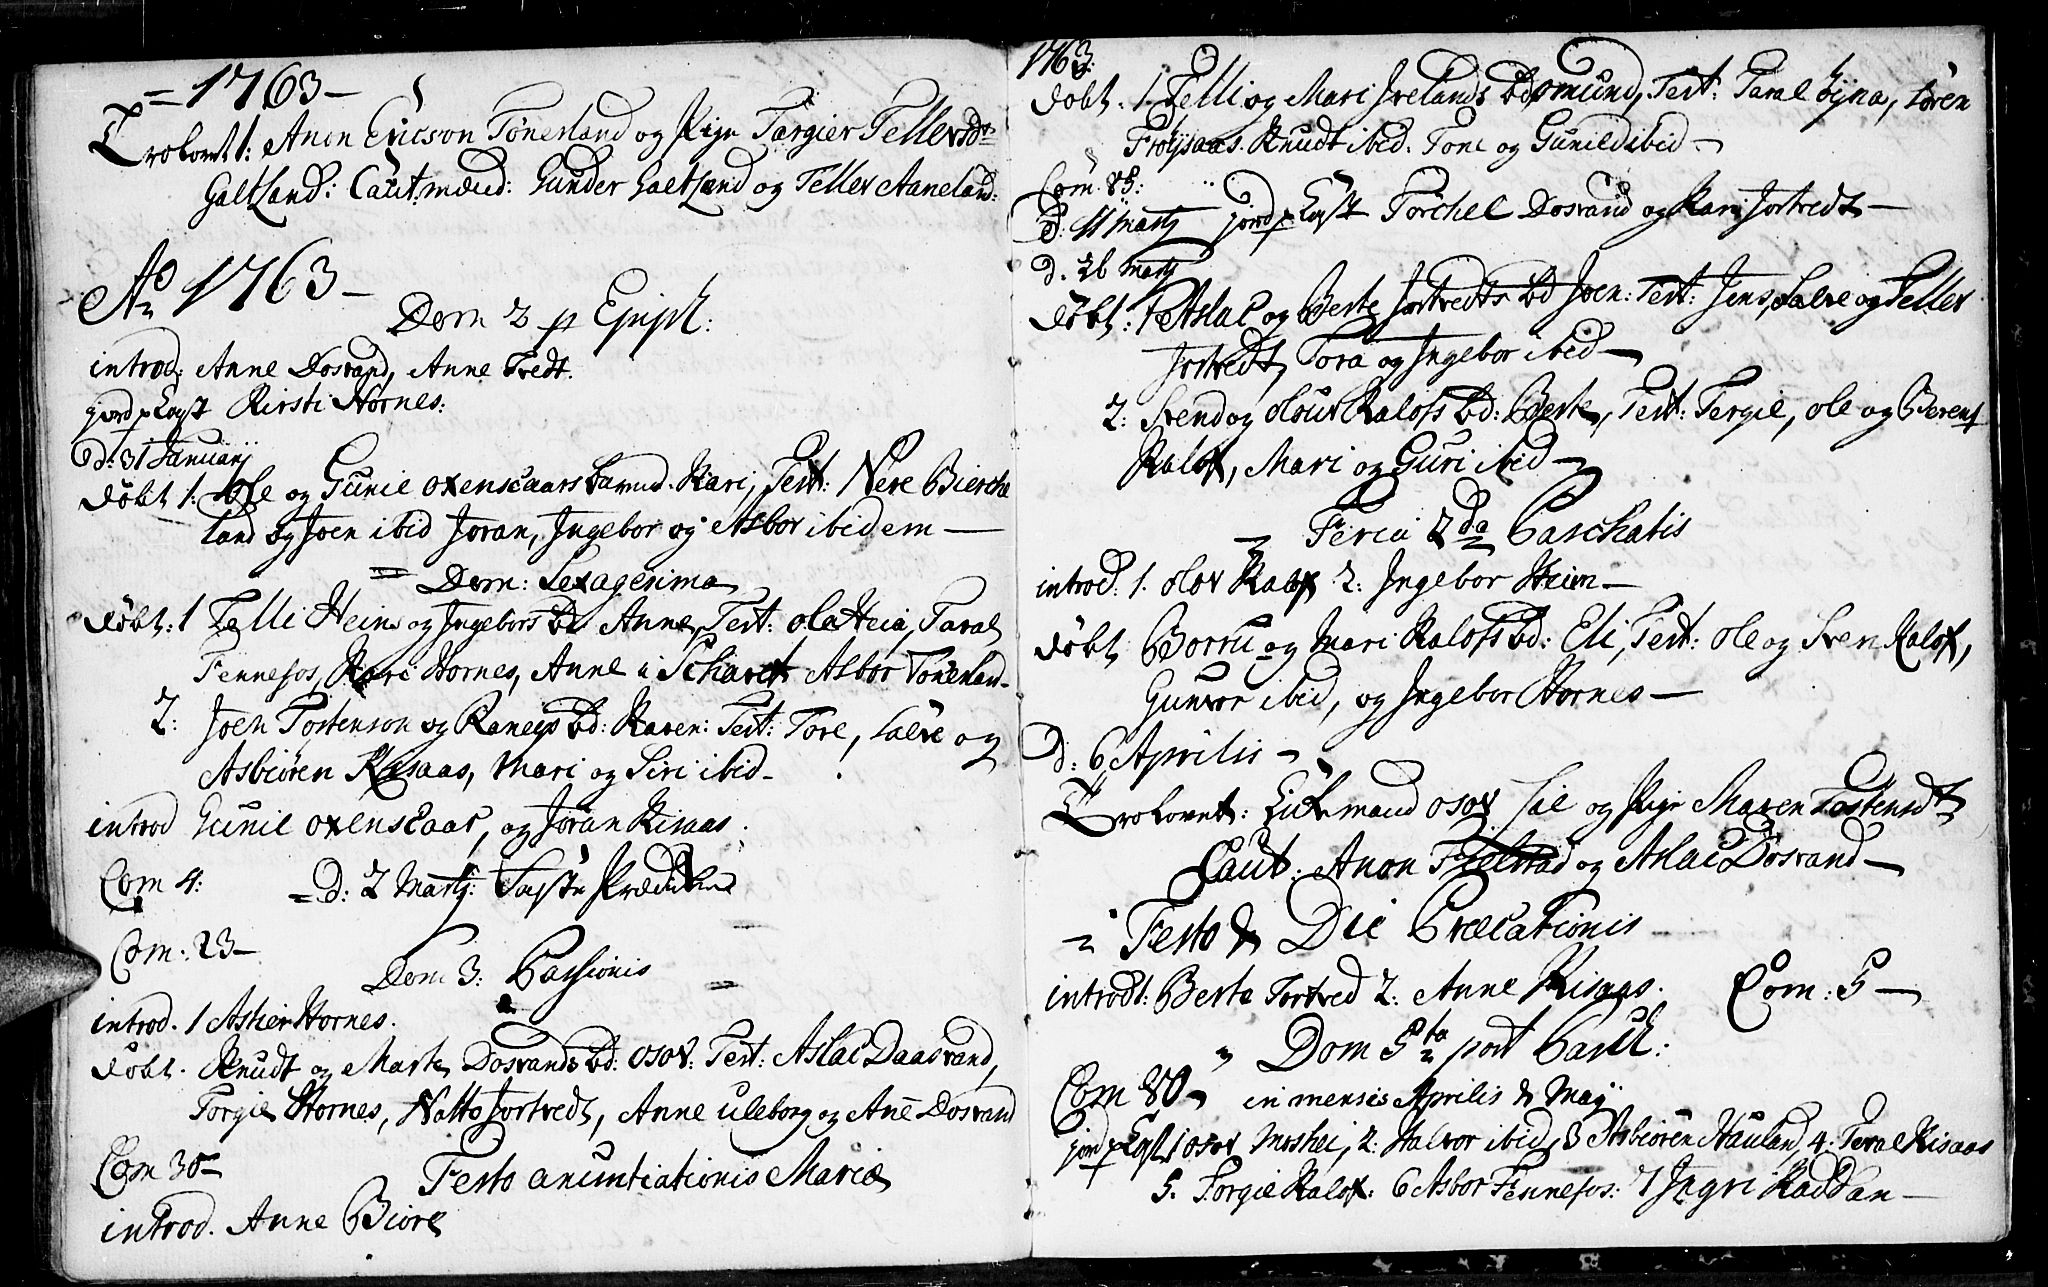 = 1763 -
Trolovet 1: Anon Ericson Tønesland og Pige Targier Tellefsdt
Galtland: Caut. mænd: Gunder Galtland og Tellev Aaneland:
Ao 1763 -
Dom 2 p Epiph:
introd: Anne Dosvand, Anne Tvedt.
jord p Kast Kirsti Hornes:
D: 31 Januarij
døbt 1: Ole og Gunil oxenscaars barn d. Kari, Test: Nere Bierche
land og Joen ibid Joran, Ingebor og Asbor ibidem -
= Dom: Sexagesima
døbt: 1 Telli Heims og Ingebors bd Anne, Test: Ole Heia, Taral
Fennefos, Kari Hornes, Anne i Scharet Asbor Tønesland -
2: Joen Tostenson og Ranegs bd: Karen: Test: Tore, Salve og
Asbiøren Risaas, Mari og Siri ibid -
introd Gunil oxenscaar, og Joran Risaas.
Com 4: = D: 2 Martj: Faste Prædiken
Com: 23 -
Dom 3: Passionis
introd. 1 Aslier Hornes.
døbt. Knudt og Marte Dosvands bd: Osov. Test: Aslac Daasvand,
Torgie Hornes, Natto Jortvedt, Anne Uleborg og Ane Dosvand
Com 30 -
Festo anuntiationis Mariæ
introd. Anne Biore
1763:
døbt: 1 Telli og Mari Irelands bd Omund, Test: Taral Syna, Søren
Frøysaas. Knudt ibid. Tone og Gunild ibid -
Com. 85:
D: 11 Martj jord p Kast Torchel Dosvand og Kari Jortvedt -
D. 26 Martj
døbt: 1 Aslac og Berte Jortvedts bd Joen: Test: Jens, Salve og Tellev
Jortvedt, Tora og Ingebor ibid -
2: Svend og Olouv Raloss bd: Berte, Test: Tergie, Ole og Berent
Ralos, Mari og Guri ibid -
Feria 2da Paschatis
introd: 1. Olov Ralos 2: Ingebor Heim -
døbt Borru og Mari Raloss bd: Eli, Test: Ole og Sven Ralos,
Gunvor ibid, og Ingebor Hornes -
D: 6 Aprilis -
Trolovet: Enkemand Osov og Pige Maren Tostensdt
Caut: Anon Fjelstad og Aslac Dosvand -
Festo Die Præcationis
introd 1: Berte Jortved 2: Anne Risaas. Com: 5 -
Dom 5ta post Pasch:
Com 80 - in mensis Aprilis & Maij
jord p Kast 1 Osov Moshei, 2: Halvor ibid, 3 Asbiøren Hauland, 4: Taral Risaas
5. Torgie Ralos: 6 Asbor Fennefos: 7 Ingri Raddan -